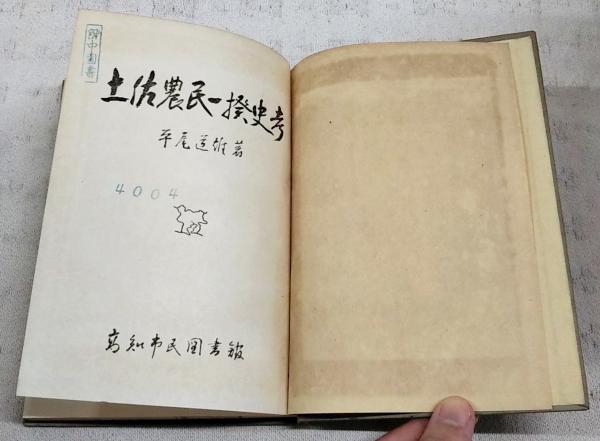 土佐農民一揆史考
平尾道雄著
4004
高知市民図書館